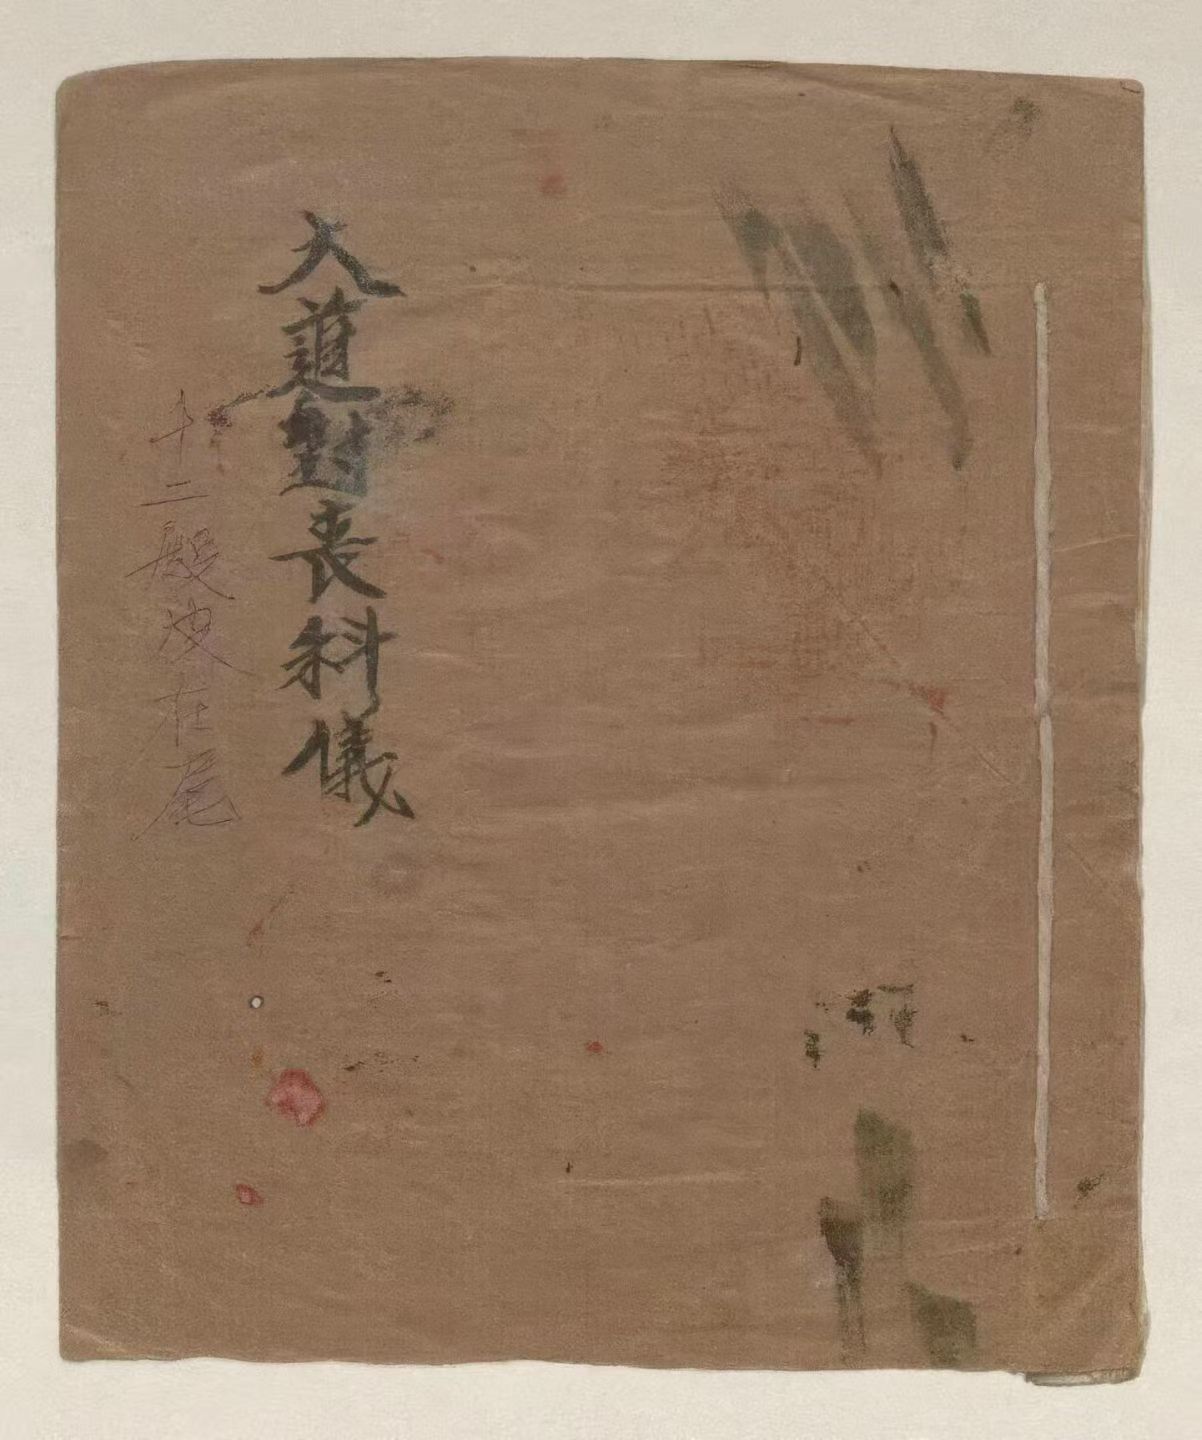 大道對喪科儀
十二殿在尾